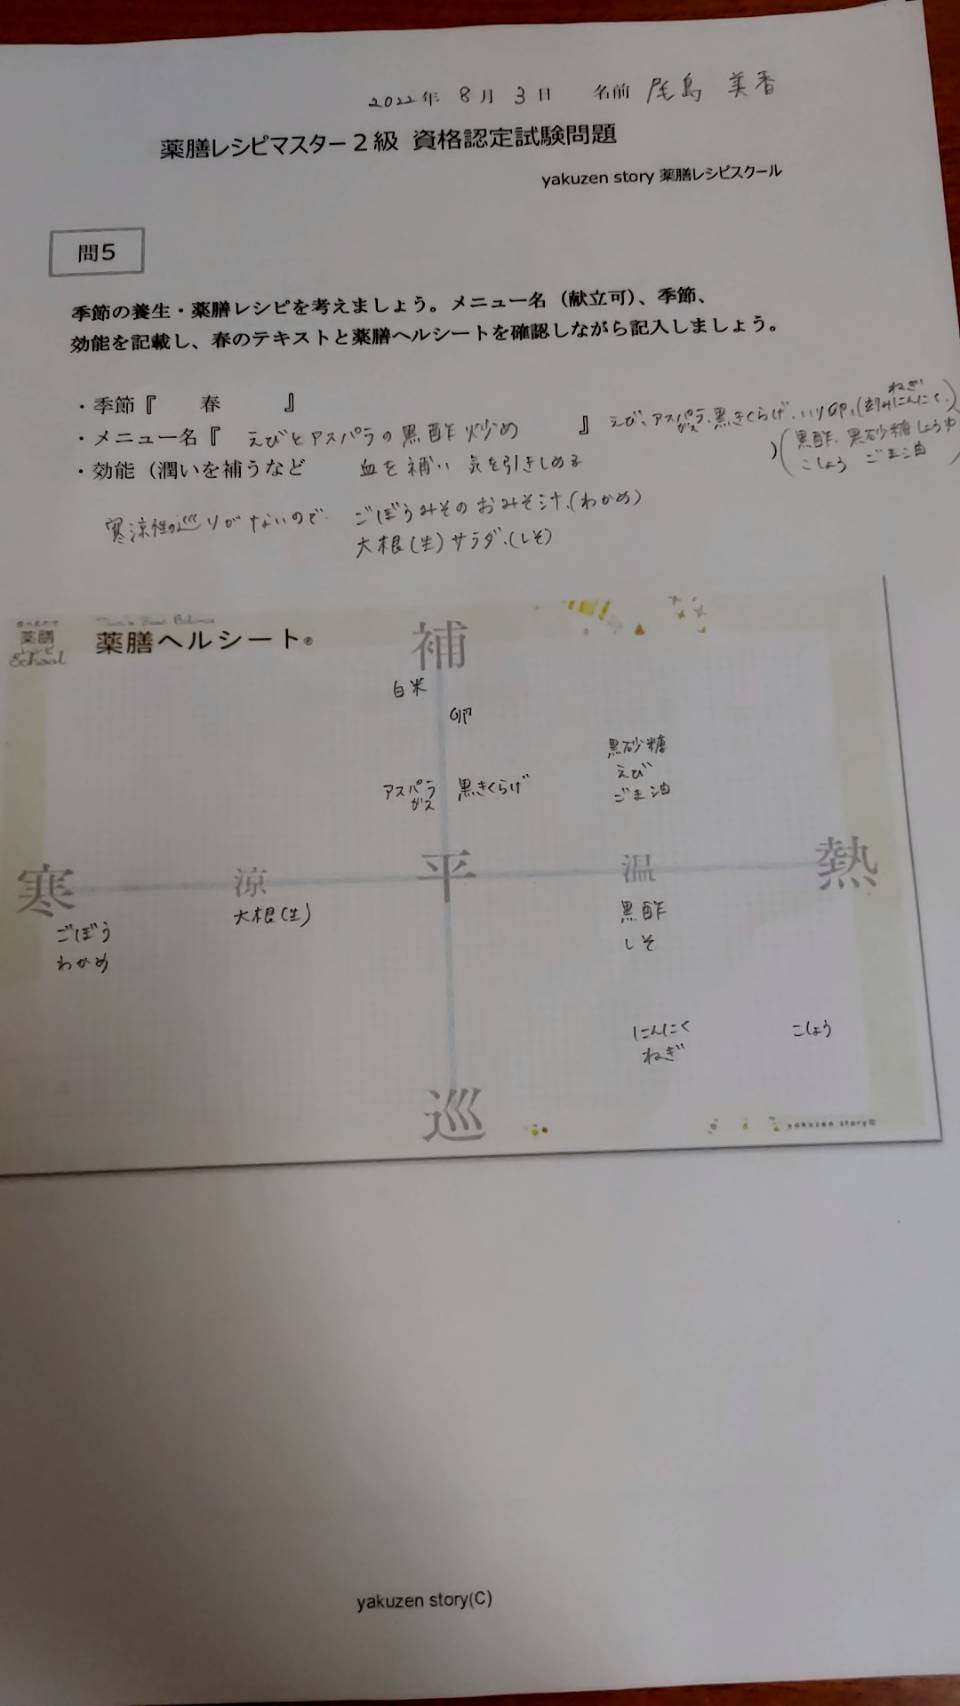 2022年 8月 3日 名前 尾島 美香
薬膳レシピマスター２級 資格認定試験問題
yakuzen story 薬膳レシピスクール
問5
季節の養生・薬膳レシピを考えましょう。メニュー名（献立可）、季節、
効能を記載し、春のテキストと薬膳ヘルシートを確認しながら記入しましょう。
・季節『 春 』
・メニュー名『 えびとアスパラの黒酢炒め 』 えび、アスパラガス、黒きくらげ、いり卵、(刻みにんにく、ねぎ)
・効能（潤いを補うなど 血を補い 気を引きしめる ）(黒酢、黒砂糖 しょうゆ
こしょう ごま油)
寒涼性の巡りがないので、ごぼうみそのおみそ汁、(わかめ)
大根(生)サラダ、(しそ)
薬膳
School
薬膳ヘルシート®
補
白米
卵
黒砂糖
えび
アスパラガス 黒きくらげ ごま油
寒 涼 平 温 熱
大根(生) 黒酢
ごぼう しそ
わかめ
にんにく こしょう
ねぎ
巡
yakuzen story©
yakuzen story(C)